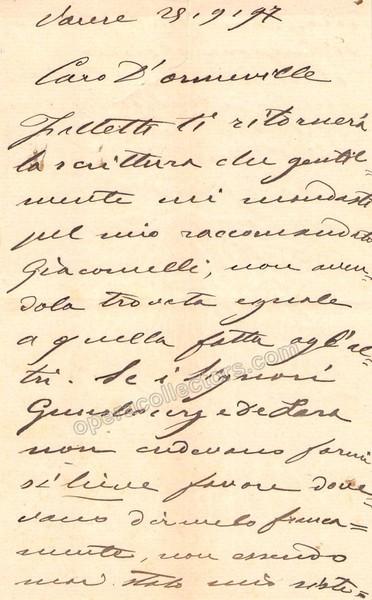 Varese 29/9/97
Caro D'ormeville
Filletti ti ritornerà
la scrittura che gentil=
mente mi mandasti
pel mio raccomandato
Giacomelli, non aven=
dola trovata eguale
a quella fatta agl'al=
tri. Se i Signori
Gunsbourg e de Lara
non credevano farmi
sì lieve favore dove=
vano dirmelo franca=
mente, non essendo
mai stato mio siste=
operacollectors.com